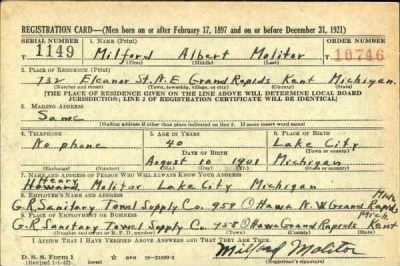 REGISTRATION CARD—(Men born on or after February 17, 1897 and on or before December 31, 1921)
SERIAL NUMBER 1. NAME (Print) ORDER NUMBER
T 1149 Milford Albert Molitor T 10746
(First) (Middle) (Last)
2. PLACE OF RESIDENCE (Print)
732 Eleanor St. N.E Grand Rapids Kent Michigan.
(Number and street) (Town, township, village, or city) (County) (State)
[THE PLACE OF RESIDENCE GIVEN ON THE LINE ABOVE WILL DETERMINE LOCAL BOARD
JURISDICTION; LINE 2 OF REGISTRATION CERTIFICATE WILL BE IDENTICAL]
3. MAILING ADDRESS
Same
[Mailing address if other than place indicated on line 2. If same insert word same]
4. TELEPHONE 5. AGE IN YEARS 6. PLACE OF BIRTH
No phone 40 Lake City
DATE OF BIRTH (Town or county)
August 10 1901 Michigan
(Exchange) (Number) (Mo.) (Day) (Yr.) (State or country)
7. NAME AND ADDRESS OF PERSON WHO WILL ALWAYS KNOW YOUR ADDRESS
Henry
Howard Molitor Lake City Michigan
8. EMPLOYER'S NAME AND ADDRESS Mich
G.R. Sanitary Towel Supply Co 958 Ottawa N.W Grand Rapids
9. PLACE OF EMPLOYMENT OR BUSINESS Mich.
G.R. Sanitary Towel Supply Co. 958 Ottawa Grand Rapids Kent
(Number and street or R. F. D. number) (Town) (County) (State)
I AFFIRM THAT I HAVE VERIFIED ABOVE ANSWERS AND THAT THEY ARE TRUE.
D. S. S. Form 1
(Revised 1-1-42) GPO 16—21630-2
Milford Molitor